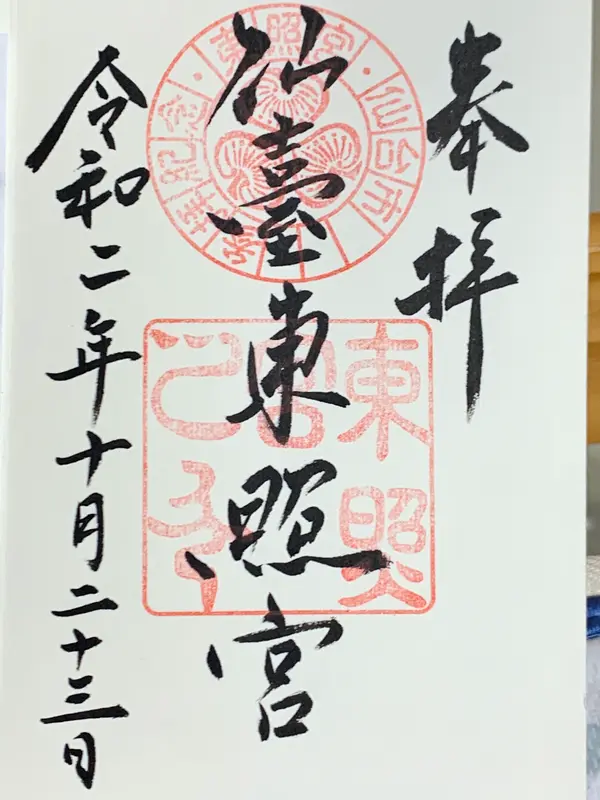 奉拝
仙臺東照宮
令和二年十月二十三日
仙台市
東照宮
参拝記念
東照宮